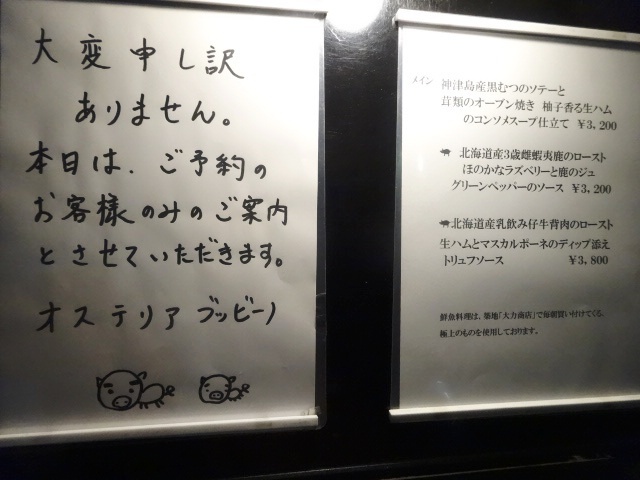 大変申し訳
ありません。
本日は、ご予約の
お客様のみのご案内
とさせていただきます。
オステリア ブッビーノ
メイン 神津島産黒むつのソテーと
茸類のオーブン焼き 柚子香る生ハム
のコンソメスープ仕立て ¥3,200
北海道産3歳雌蝦夷鹿のロースト
ほのかなラズベリーと鹿のジュ
グリーンペッパーのソース ¥3,200
北海道産乳飲み仔牛背肉のロースト
生ハムとマスカルポーネのディップ添え
トリュフソース ¥3,800
鮮魚料理は、築地「大力商店」で毎朝買い付けてくる、
極上のものを使用しております。